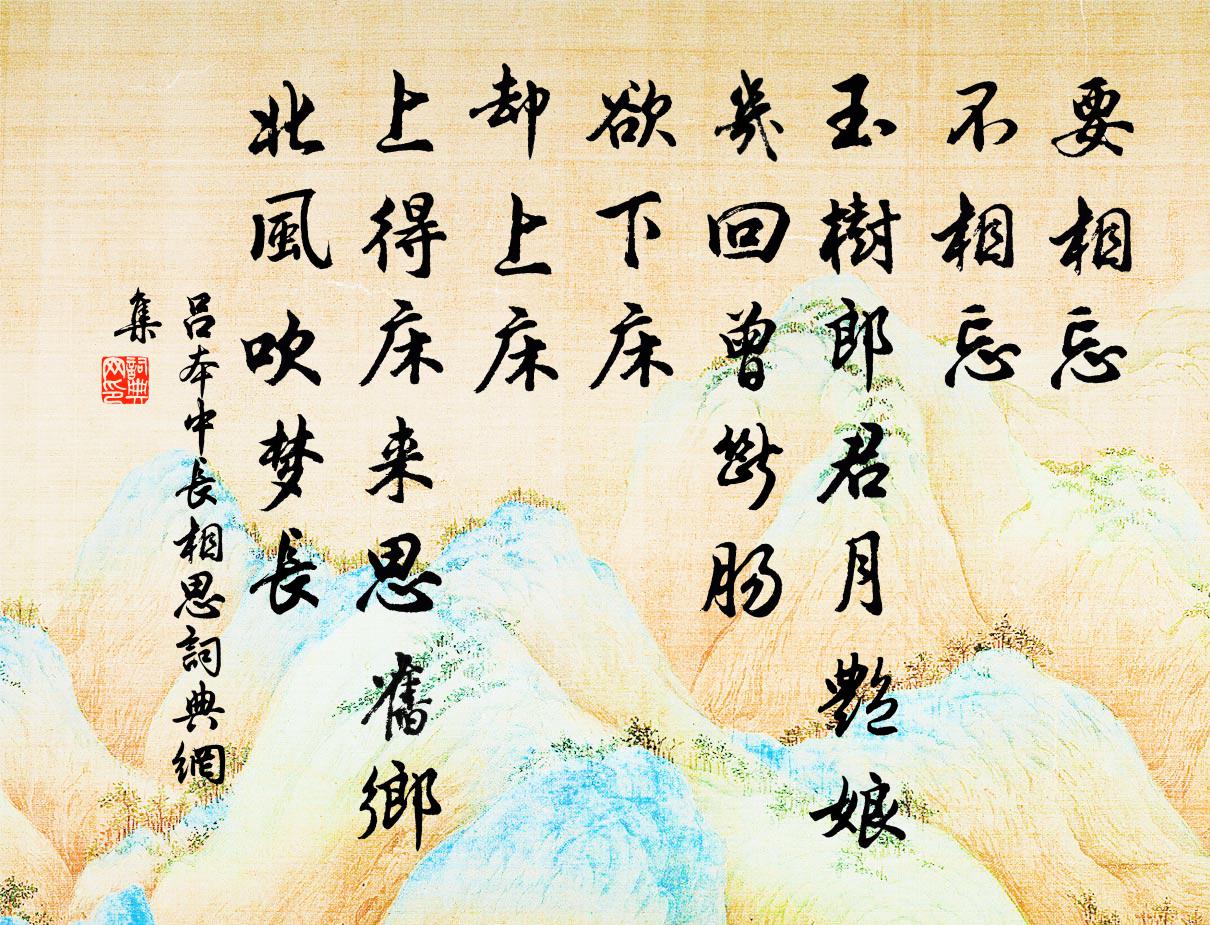 要相忘
不相忘
玉樹郎君月艷娘
幾回曾斷腸
欲下床
却上床
上得床来思舊鄉
北風吹梦長
呂本中長相思詞典網
集
詞典網印